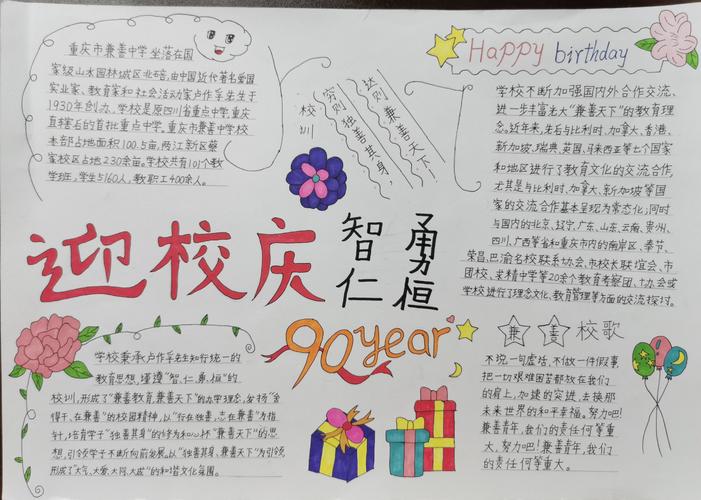 重庆市兼善中学坐落在国
家级山水园林城区北碚，由中国近代著名爱国
实业家、教育家和社会活动家卢作孚先生于
1930年创办。学校是原四川省重点中学，重庆
直辖后的首批重点中学。重庆市兼善中学校
本部占地面积100.5亩，两江新区蔡
家校区占地230余亩。学校共有101个教
学班，学生5160人，教职工400余人。
校训
穷则独善其身，
达则兼善天下
Happy birthday
学校不断加强国内外合作交流、
进一步丰富光大“兼善天下”的教育理
念。近年来，先后与比利时、加拿大、香港、
新加坡、瑞典、英国、马来西亚等七个国家
和地区进行了教育文化的交流合作，
尤其是与比利时、加拿大、新加坡等国
家的交流合作基本呈现为常态化；同时
与国内的北京、辽宁、广东、山东、云南、贵州、
四川、广西等省和重庆市内的南岸区、奉节、
荣昌、巴渝名校联系协会、市校长联谊会、市
团校、求精中学等20余个教育考察团、协会或
学校进行了理念文化、教育管理等方面的交流探讨。
迎校庆
智仁
勇恒
90 year
学校秉承卢作孚先生知行统一的
教育思想，谨遵“智、仁、勇、恒”的
校训，形成了“兼善教育，兼善天下”的办学理念，发扬“舍
得干、在兼善”的校园精神，以“行在独善，志在兼善”为指
针，培育学子“独善其身”的
“兼善天下”的思
想，引领学子不断向前发展，以“独善其身、兼善天下”为引领
形成了“大气、大爱、大同、大成”的和谐文化氛围。
兼善校歌
不说一句虚话，不做一件假事，
把一切艰难困苦都放在我们
的肩上，加速的突进，去换那
未来世界的和平幸福。努力吧！
兼善青年，我们的责任何等重
大，努力吧！兼善青年，我们
的责任何等重大。